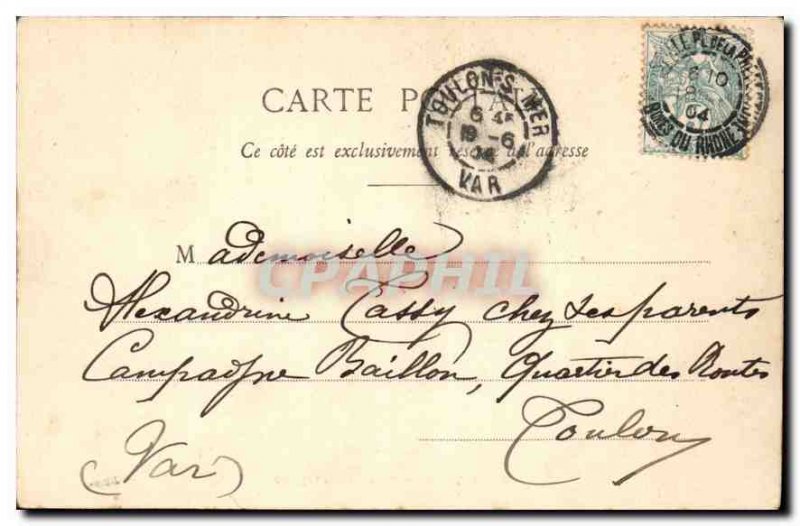 CARTE POSTALE
Ce côté est exclusivement réservé à l'adresse
TOULON-S-MER
6
19 -6
04
VAR
PL DE LA PRE
10
04
BOUCHES DU RHONE
CPAPHIL
Mademoiselle
Alexandrine Cassy chez ses parents
Campagne Baillon, Quartier des Routes
Toulon
(Var)